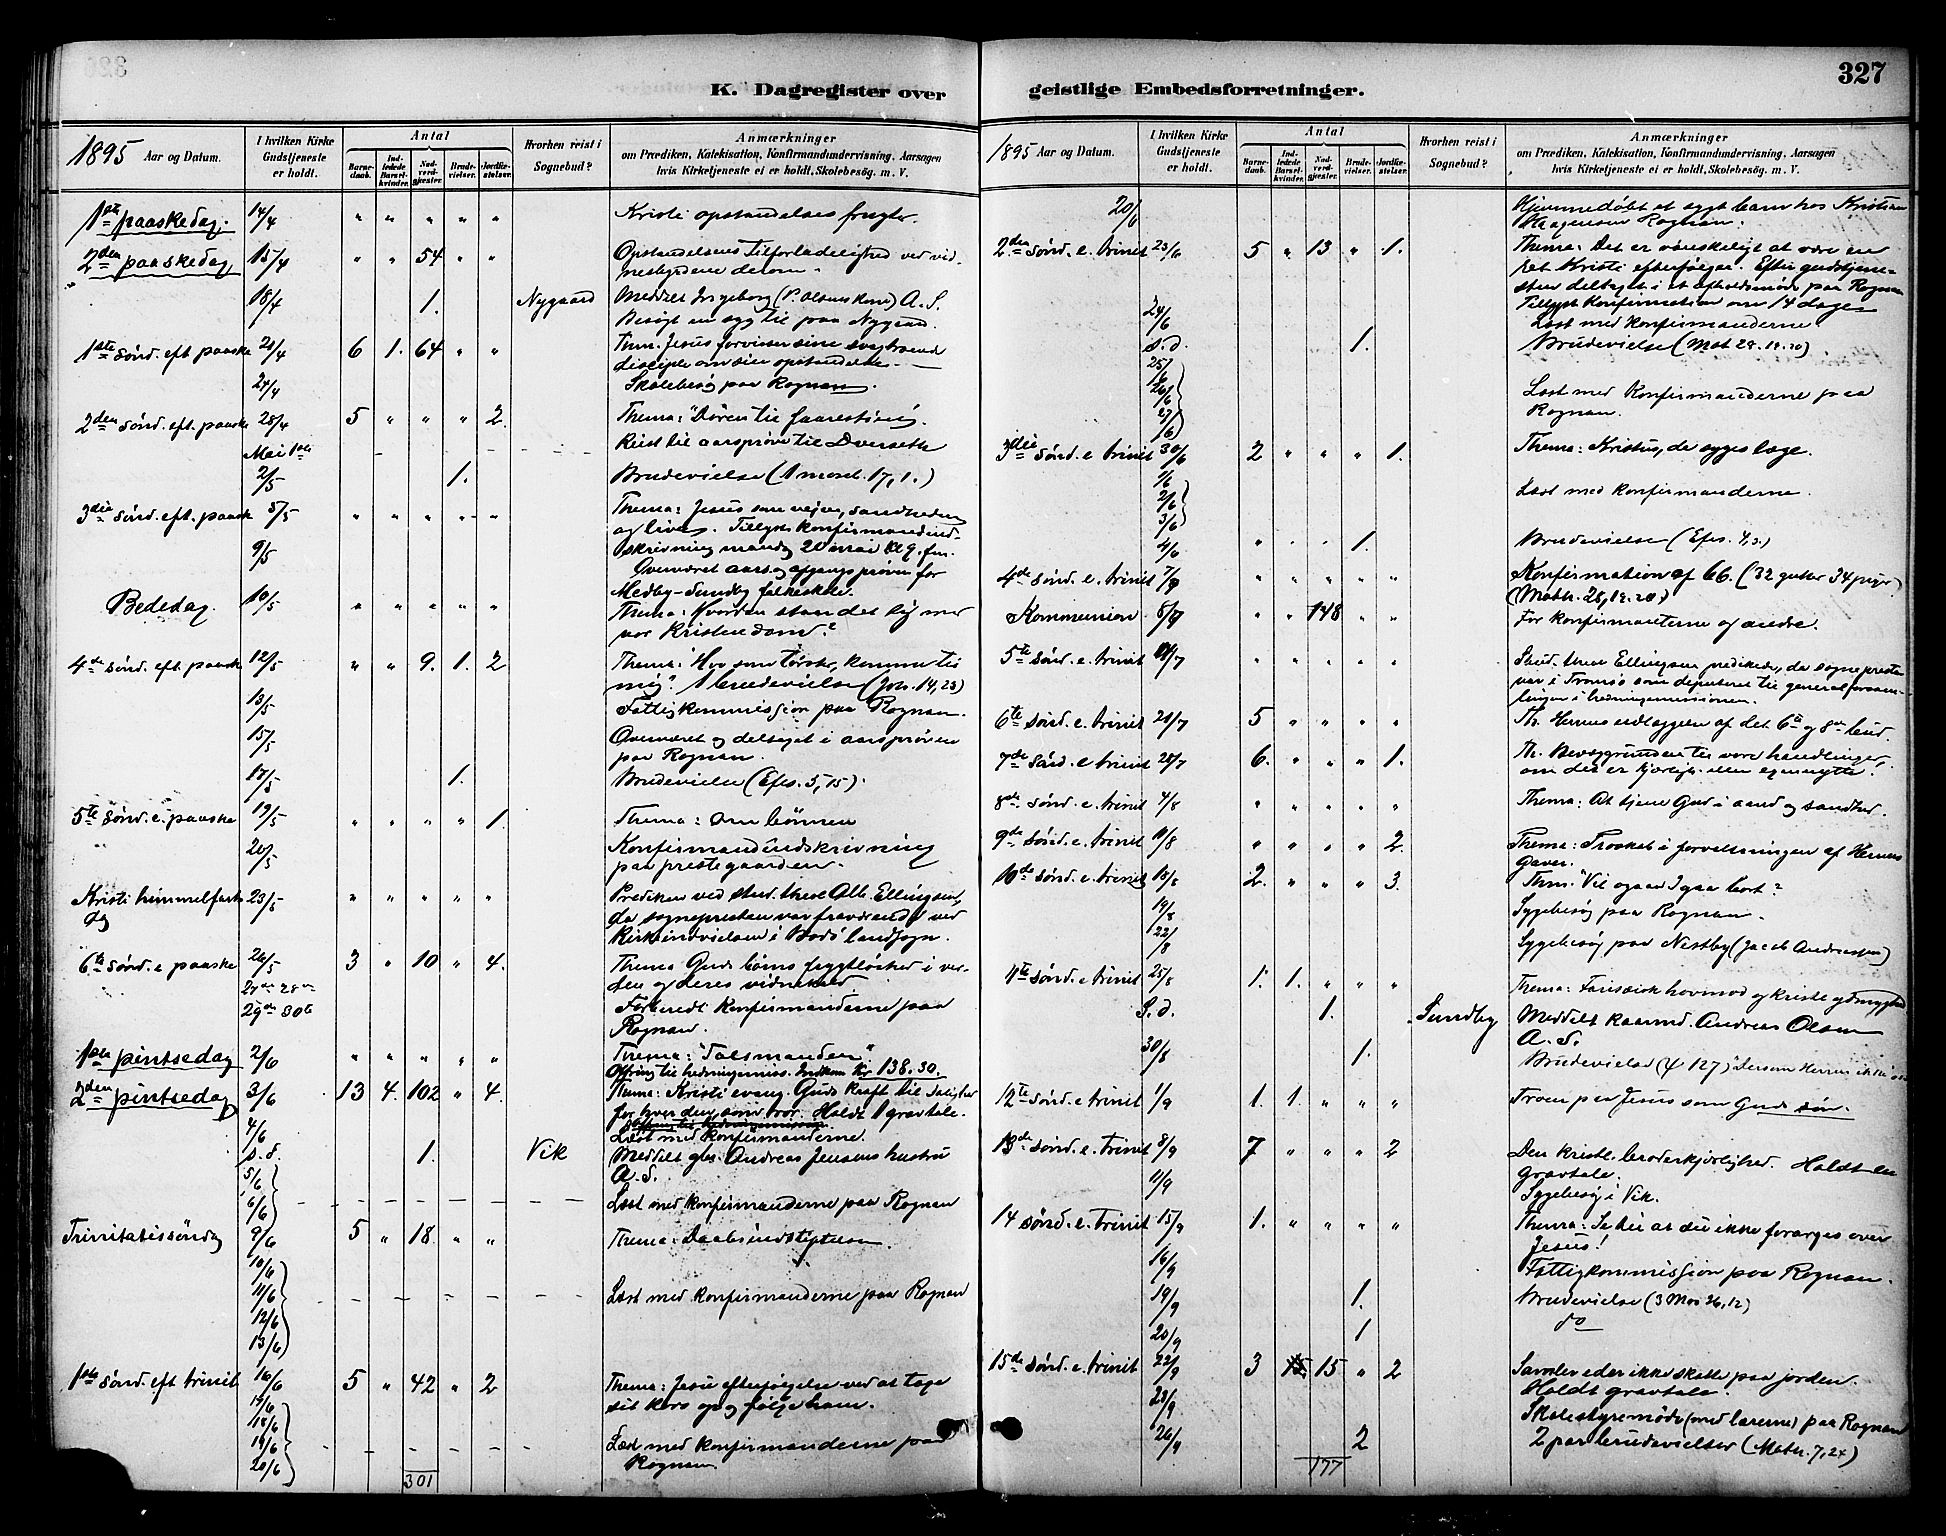 327
K. Dagregister over
geistlige Embedsforretninger.
1895 Aar og Datum.
I hvilken Kirke Gudstjeneste er holdt.
Antal
Barnedaab.
Indledede Barselkvinder.
Nadverdgjester.
Brudevielser.
Jordfæstelser.
Hvorhen reist i Sognebud?
Anmærkninger
om Prædiken, Katekisation, Konfirmandundervisning, Aarsagen
hvis Kirketjeneste ei er holdt, Skolebesøg. m. V.
1ste paaskedag. 14/4 " " " " " Kristi opstandelses frugter.
2den paaskedag 15/4 " " 54 " " Opstandelsens Tilforladelighed ved vid-
nesbyrdene derom.
18/4 1. Nygaard Meddelt Ingeborg (P. Olsens kone) A. S.
Besøgt en syg til paa Nygaard.
1ste sönd. eft. paaske 21/4 6 1. 64 " " Thm. Jesus forvisser sine svagtroende
disciple om sin opstandelse.
24/4 Skolebesøg paa Rognan.
2den sönd. eft. paaske 28/4 5 " " " 2. Thema: "Døren til faarestien".
Mai 1ste Reist til aarsprøve til Dverseth
2/5 1. Brudevielse (1 moseb. 17,1.)
3die sönd. eft. paask 5/5 " " " " " Thema: Jesus som vejen, sandheden
og livet. Tillyst konfirmandind-
skrivning mandag 20 mai kl 9 fm.
9/5 Overværet aars og afgangsprøven for
Medby-Sundby folkeskole.
Bededag. 10/5 " " " " " Thema: Hvordan staar det sig med
vor kristendom?
4de sönd. eft. paask 12/5 " " 9. 1. 2 Thema: "Hvo som tørster, komme til
mig". 1 brudevielse (Joh. 14,23)
13/5 Fattigkommission paa Rognan.
15/5 Overværet og deltaget i aarsprøven
paa Rognan.
17/5 1. Brudevielse (Efes. 3,15).
5te sönd. e. paaske 19/5 " " " " 1. Thema: om bönnen
20/5 Konfirmandindskrivning
paa prestegaarden.
Kristi himmelfarts dg 23/5 " " " " " Prediken ved stud. theol Alb. Ellingsen,
da sognepresten var fraværende ved
Kirkeindvielsen i Bodö landsogn.
6te sönd. e paaske 26/5 3 " 10 " 4. Thema Guds børns frygtløshed i ver-
den og deres vidnesbyrd.
27de 28de
29de 30te Forberedt konfirmanderne paa
Rognan.
1ste pintsedag 2/6 " " " " " Thema: "Talsmanden".
Ofring til hedningemiss. Indkom Kr 138.30.
2den pintsedag 3/6 13 4. 102 " 4. Thema: Kristi evang. Guds kraft til salighed
for hver den, som tror. Holdt 1 gravtale.
4/6 Læst med konfirmanderne.
s. d. 1. Vik Meddelt gbr. Andreas Jensens hustru
A. S.
5/6
6/6 Læst med konfirmanderne paa Rognan
Trinitatissöndag 9/6 5 " 18. " " Thema: Daabsindstiftelsen.
10/6
11/6 Læst med konfirmanderne paa Rognan
12/6
13/6
1ste sönd. eft trinit. 16/6 5 " 42 " 2 Thema: Jesu efterfølgelse ved at tage
sit kors op og følge ham.
17/6
18/6
19/6 Læst med konfirmanderne paa
20/6 Rognan.
301
1895 Aar og Datum.
I hvilken Kirke Gudstjeneste er holdt.
Antal
Barnedaab.
Indledede Barselkvinder.
Nadverdgjester.
Brudevielser.
Jordfæstelser.
Hvorhen reist i Sognebud?
Anmærkninger
om Prædiken, Katekisation, Konfirmandundervisning, Aarsagen
hvis Kirketjeneste ei er holdt, Skolebesøg. m. V.
20/6 Hjemmedøbt et sygt barn hos Kristian
Rognan.
2den sönd. e. trinit 23/6 5 " 13 " 1. Thema: Det er vanskeligt at være en
ret Kristi efterfølger. Efter gudstjene-
sten deltaget i et afholdsmøde paa Rognan
Tillyst konfirmation om 14 dage
24/6 Læst med konfirmanderne
s. d. 1. Brudevielse (Mat 28. 19.20)
25/6
26/6 Læst med konfirmanderne paa
27/6 Rognan.
3die sönd. e trinit 30/6 2 " " " 1. Thema: Kristus, de syges læge.
1/6
2/6 Læst med konfirmanderne.
3/6
4/6 " " " 1. Brudevielse (Efes. 4,3.)
4de sönd. e. trinit 7/7 " " " " " Konfirmation af 66. (32 gutter 34 piger)
(Matth. 28,19.20.)
Kommunion 8/7 " " 148 " " For konfirmanterne og andre.
5te sönd. e. trinit 14/7 " " " " " Stud. theol Ellingsen predikede, da sognepresten
var i Tromsö som deputeret til generalforsam-
lingen i hedningemissionen.
6te sönd. e. trinit 21/7 5 " " " " Th. Herrens udlæggelse af det 6te og 8de bud.
7de sönd. e trinit 28/7 6. " " " 1. Th. Bevæggrunden til vore handlinger,
om det er kjærligh. eller egennytte!
8de sönd. e. trinit 4/8 " " " " " Thema: At tjene Gud i aand og sandhed.
9de sönd. e. trinit 11/8 " " " " 2. Thema: Troskab i forvaltningen af Herrens
gaver.
10de sönd. e. trinit 18/8 2. " " " 3. Thm. "Vil ogsaa I gaa bort?"
19/8 Sygebesøg paa Rognan.
22/8 Sygebesøg paa Nestby (Jacob Andreassen)
11te sönd. e. trinit 25/8 1. 1. " " " Thema: Farisæisk hovmod og kristelig ydmyghed
S. d. 1. Sundby Meddelt kaarmd. Andreas Olsen
A. S.
30/8 1. Brudevielse (ψ 127) "Dersom Herren ikke"
12te sönd. e. trinit 1/9 1. 1. " " " Troen paa Jesus som Guds søn.
13de sönd. e. trinit 8/9 7 " " " 2 Den kristl. broderkjærlighed. Holdt en
gravtale.
11/9 Sygebesøg i Vik.
14 sönd. e. trinit 15/9 1. " " " " Thema: Se til at du ikke forarges over
Jesus!
16/9 Fattigkommission paa Rognan.
19/9 1. Brudevielse (3 Mos 26,12)
20/9 1 do
15de sönd. e. trinit 22/9 3 15 " 2 Samler eder ikke skatte paa jorden.
Holdt gravtale.
23/9 Skolestyremøde (med lærerne) paa Rognan
26/9 2 2 par brudevielser (Math. 7,24)
177